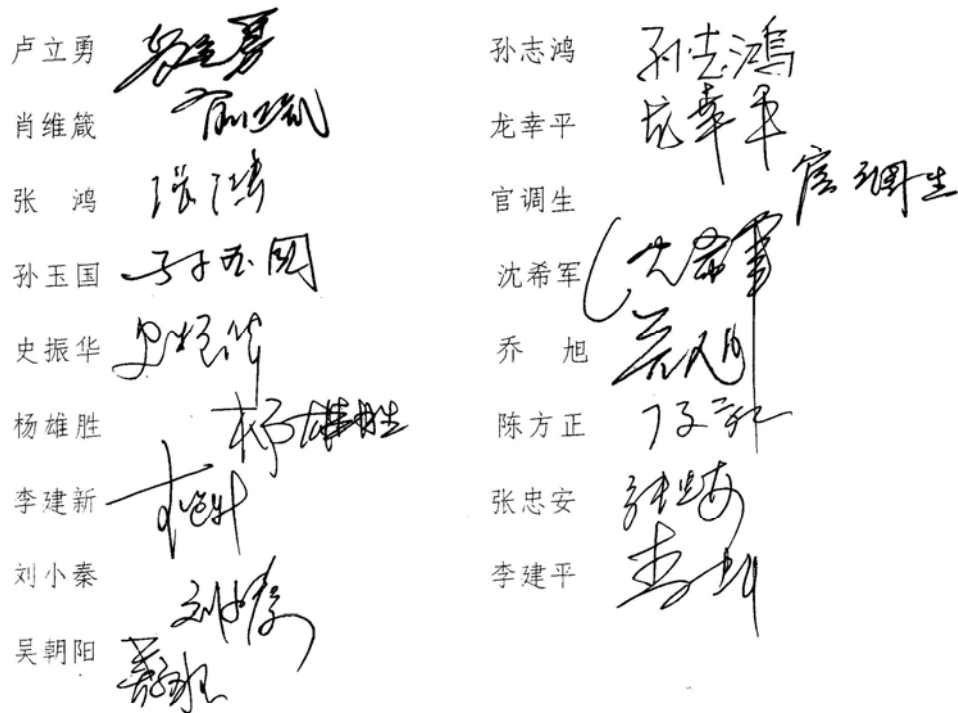 卢立勇 卢立勇
肖维箴
张 鸿 张鸿
孙玉国 孙玉国
史振华 史振华
杨雄胜 杨雄胜
李建新
刘小秦 刘小秦
吴朝阳
孙志鸿 孙志鸿
龙幸平 龙幸平
官调生 官调生
沈希军 沈希军
乔 旭
陈方正
张忠安 张忠安
李建平